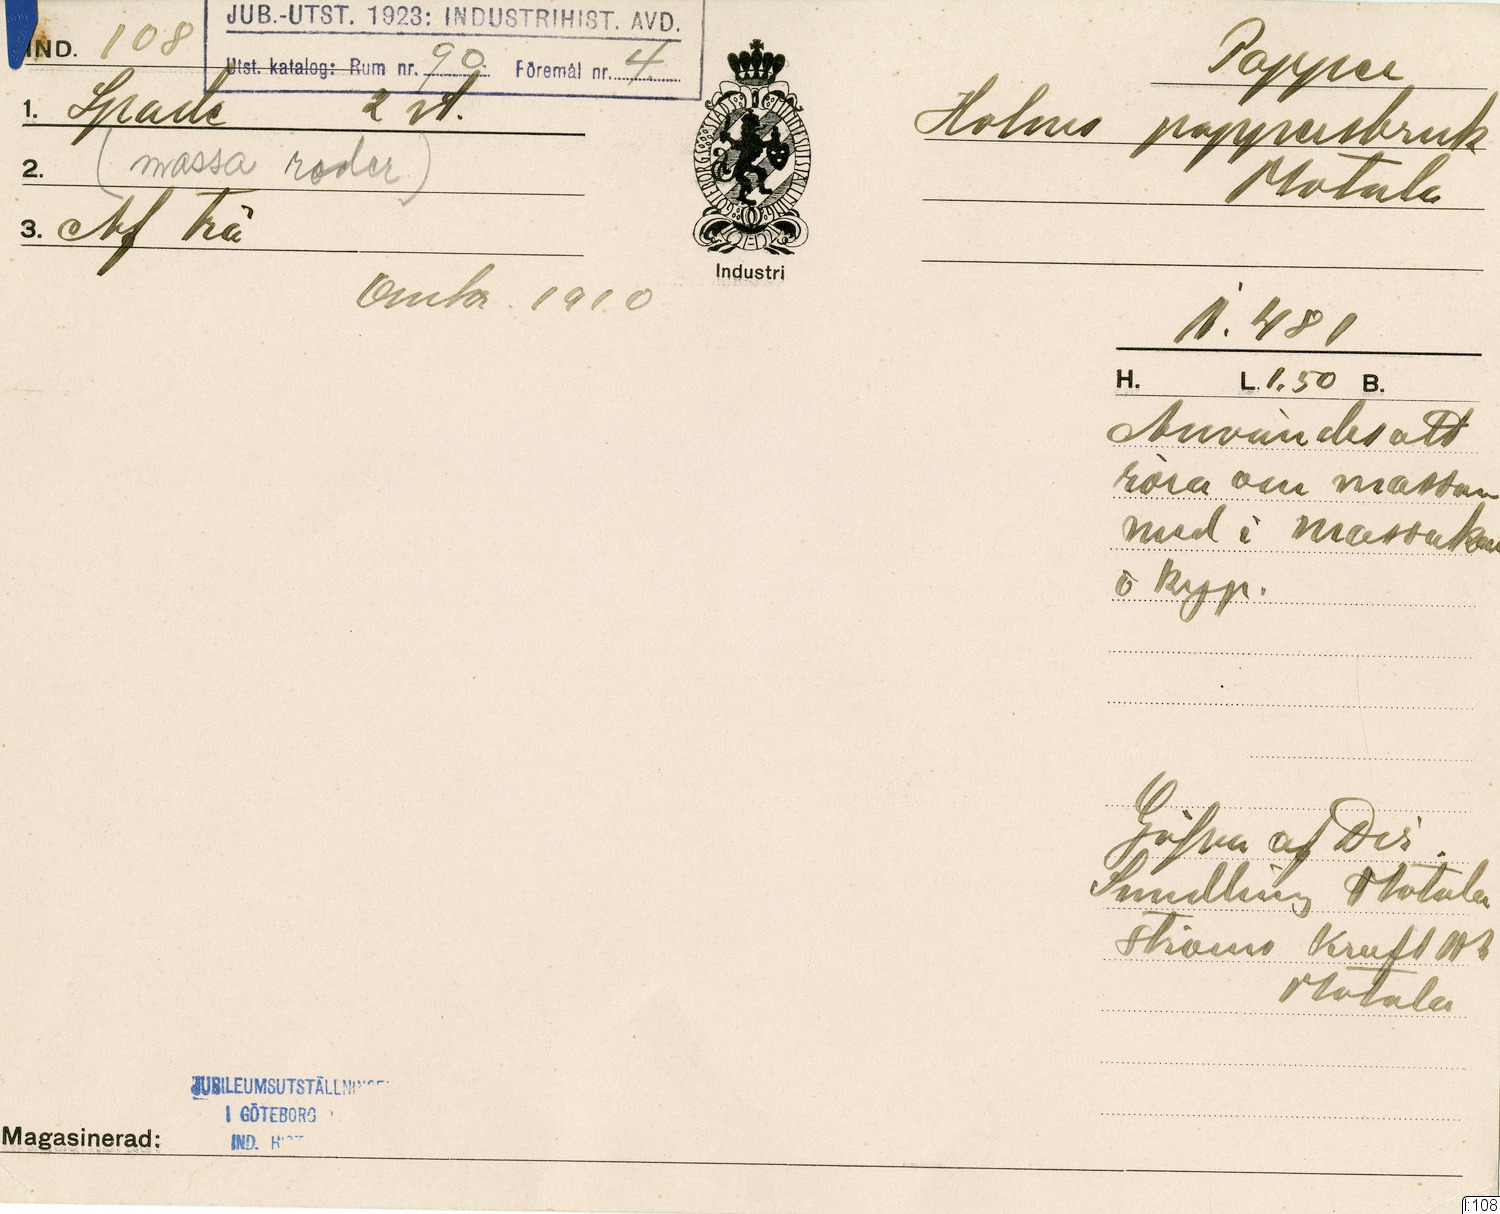 JUB.-UTST. 1923: INDUSTRIHIST. AVD.
Utst. katalog: Rum nr. 90 Föremål nr. 4
IND. 108
1. Spade 2 st.
2. (massa roder)
3. Af trä
Omkr. 1910
GÖTEBORGS STADS MINNESUTSTÄLLNING
Industri
Papper
Holms pappersbruk
Motala
N. 481
H. L. 1.50 B.
Användes att
röra om massan
med i massakar
o kyp.
Gåfva af Dis.
Sundling Motala
Ströms Kraft AB
Motala
JUBILEUMSUTSTÄLLNINGEN
I GÖTEBORG
IND. HIST
Magasinerad:
I:108